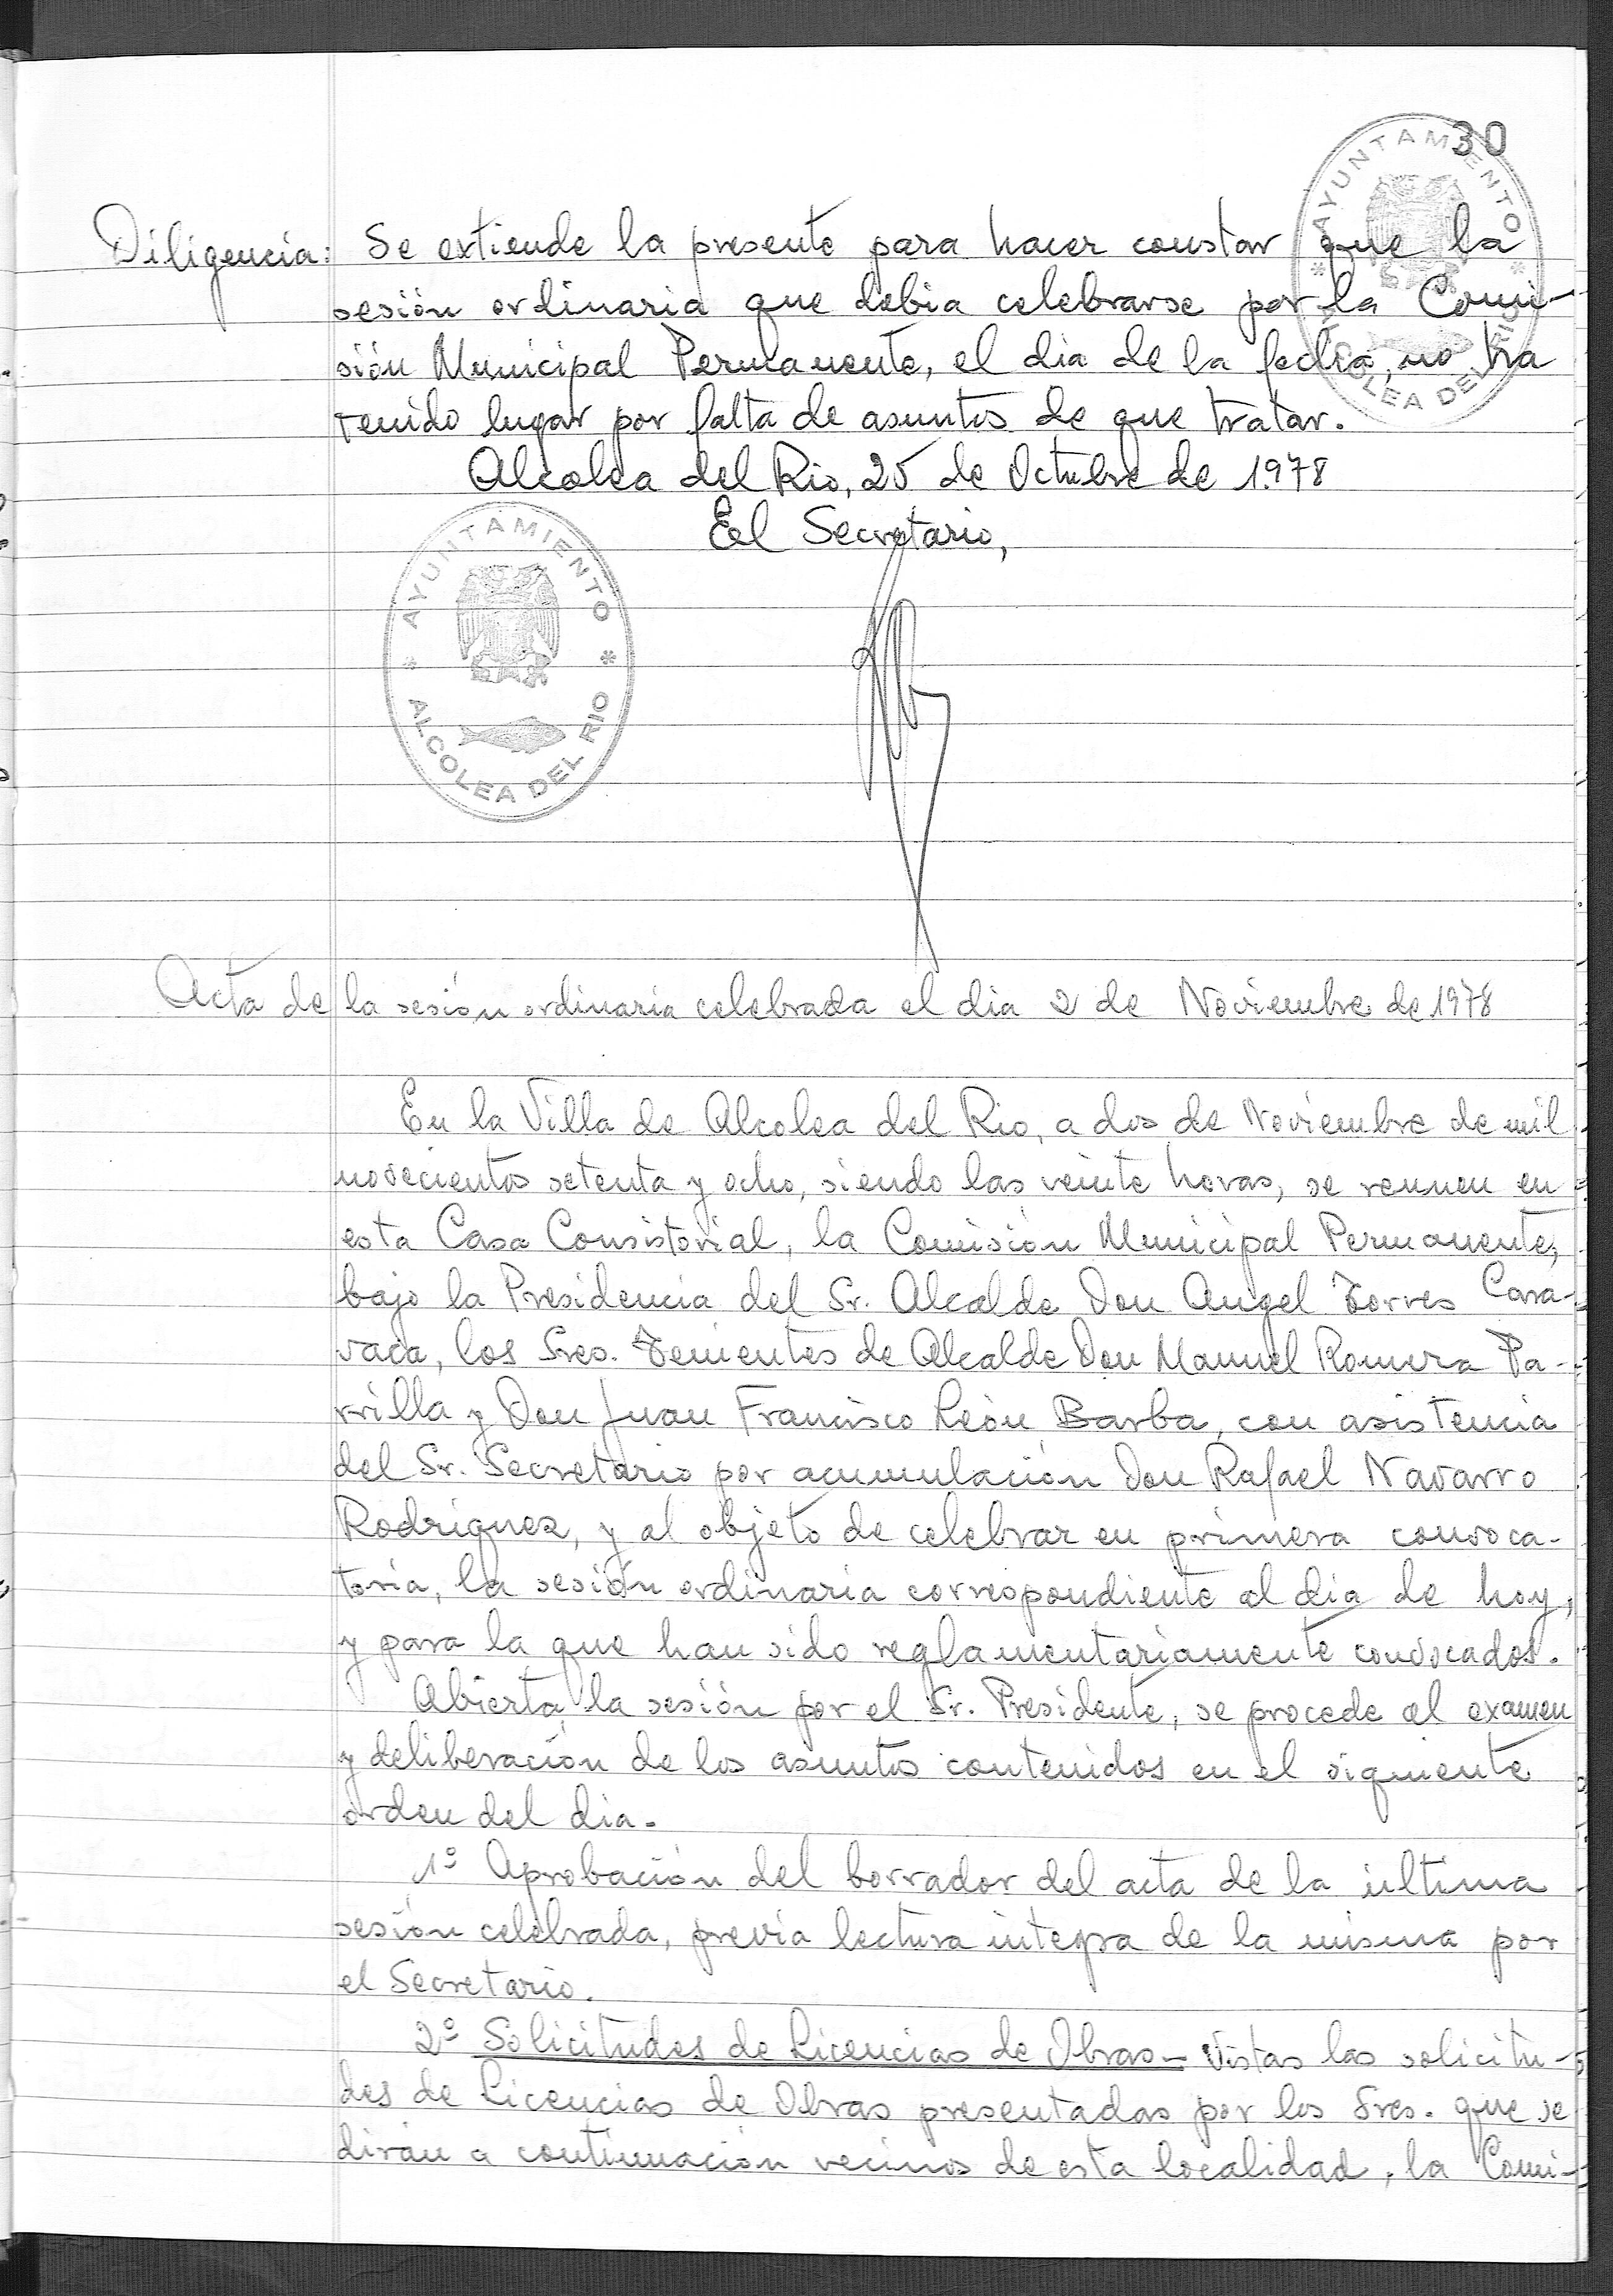 30
AYUNTAMIENTO
ALCOLEA DEL RIO
Diligencia: Se extiende la presente para hacer constar que la
sesión ordinaria que debia celebrarse por la Comi-
sión Municipal Permanente, el dia de la fecha, no ha
tenido lugar por falta de asuntos de que tratar.
Alcolea del Rio, 25 de Octubre de 1.978
El Secretario,
AYUNTAMIENTO
ALCOLEA DEL RIO
Acta de la sesión ordinaria celebrada el dia 2 de Noviembre de 1978
En la Villa de Alcolea del Rio, a dos de Noviembre de mil
novecientos setenta y ocho, siendo las veinte horas, se reunen en
esta Casa Consistorial, la Comisión Municipal Permanente,
bajo la Presidencia del Sr. Alcalde Don Angel Torres Cara-
vaca, los Sres. Tenientes de Alcalde Don Manuel Romera Pa-
rrilla y Don Juan Francisco León Barba, con asistencia
del Sr. Secretario por acumulación Don Rafael Navarro
Rodriguez, y al objeto de celebrar en primera convoca-
toria, la sesión ordinaria correspondiente al dia de hoy,
y para la que han sido reglamentariamente convocados.
Abierta la sesión por el Sr. Presidente, se procede al examen
y deliberación de los asuntos contenidos en el siguiente
orden del dia.
1º Aprobación del borrador del acta de la última
sesión celebrada, previa lectura integra de la misma por
el Secretario.
2º Solicitudes de Licencias de Obras.- Vistas las solicitu-
des de Licencias de Obras presentadas por los Sres. que se
dirán a continuación vecinos de esta localidad, la Comi-